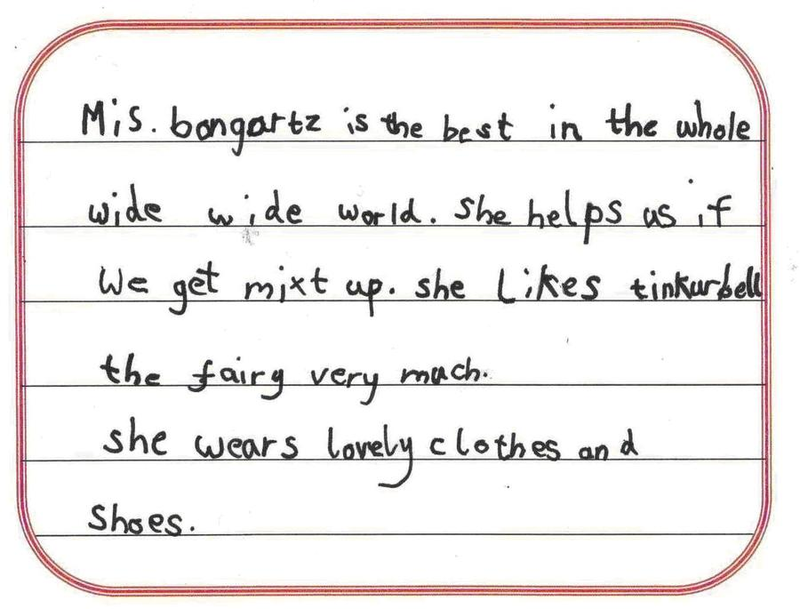 Mis. bongartz is the best in the whole
wide wide world. She helps us if
We get mixt up. she Likes tinkurbell
the fairy very much.
she wears lovely clothes and
Shoes.